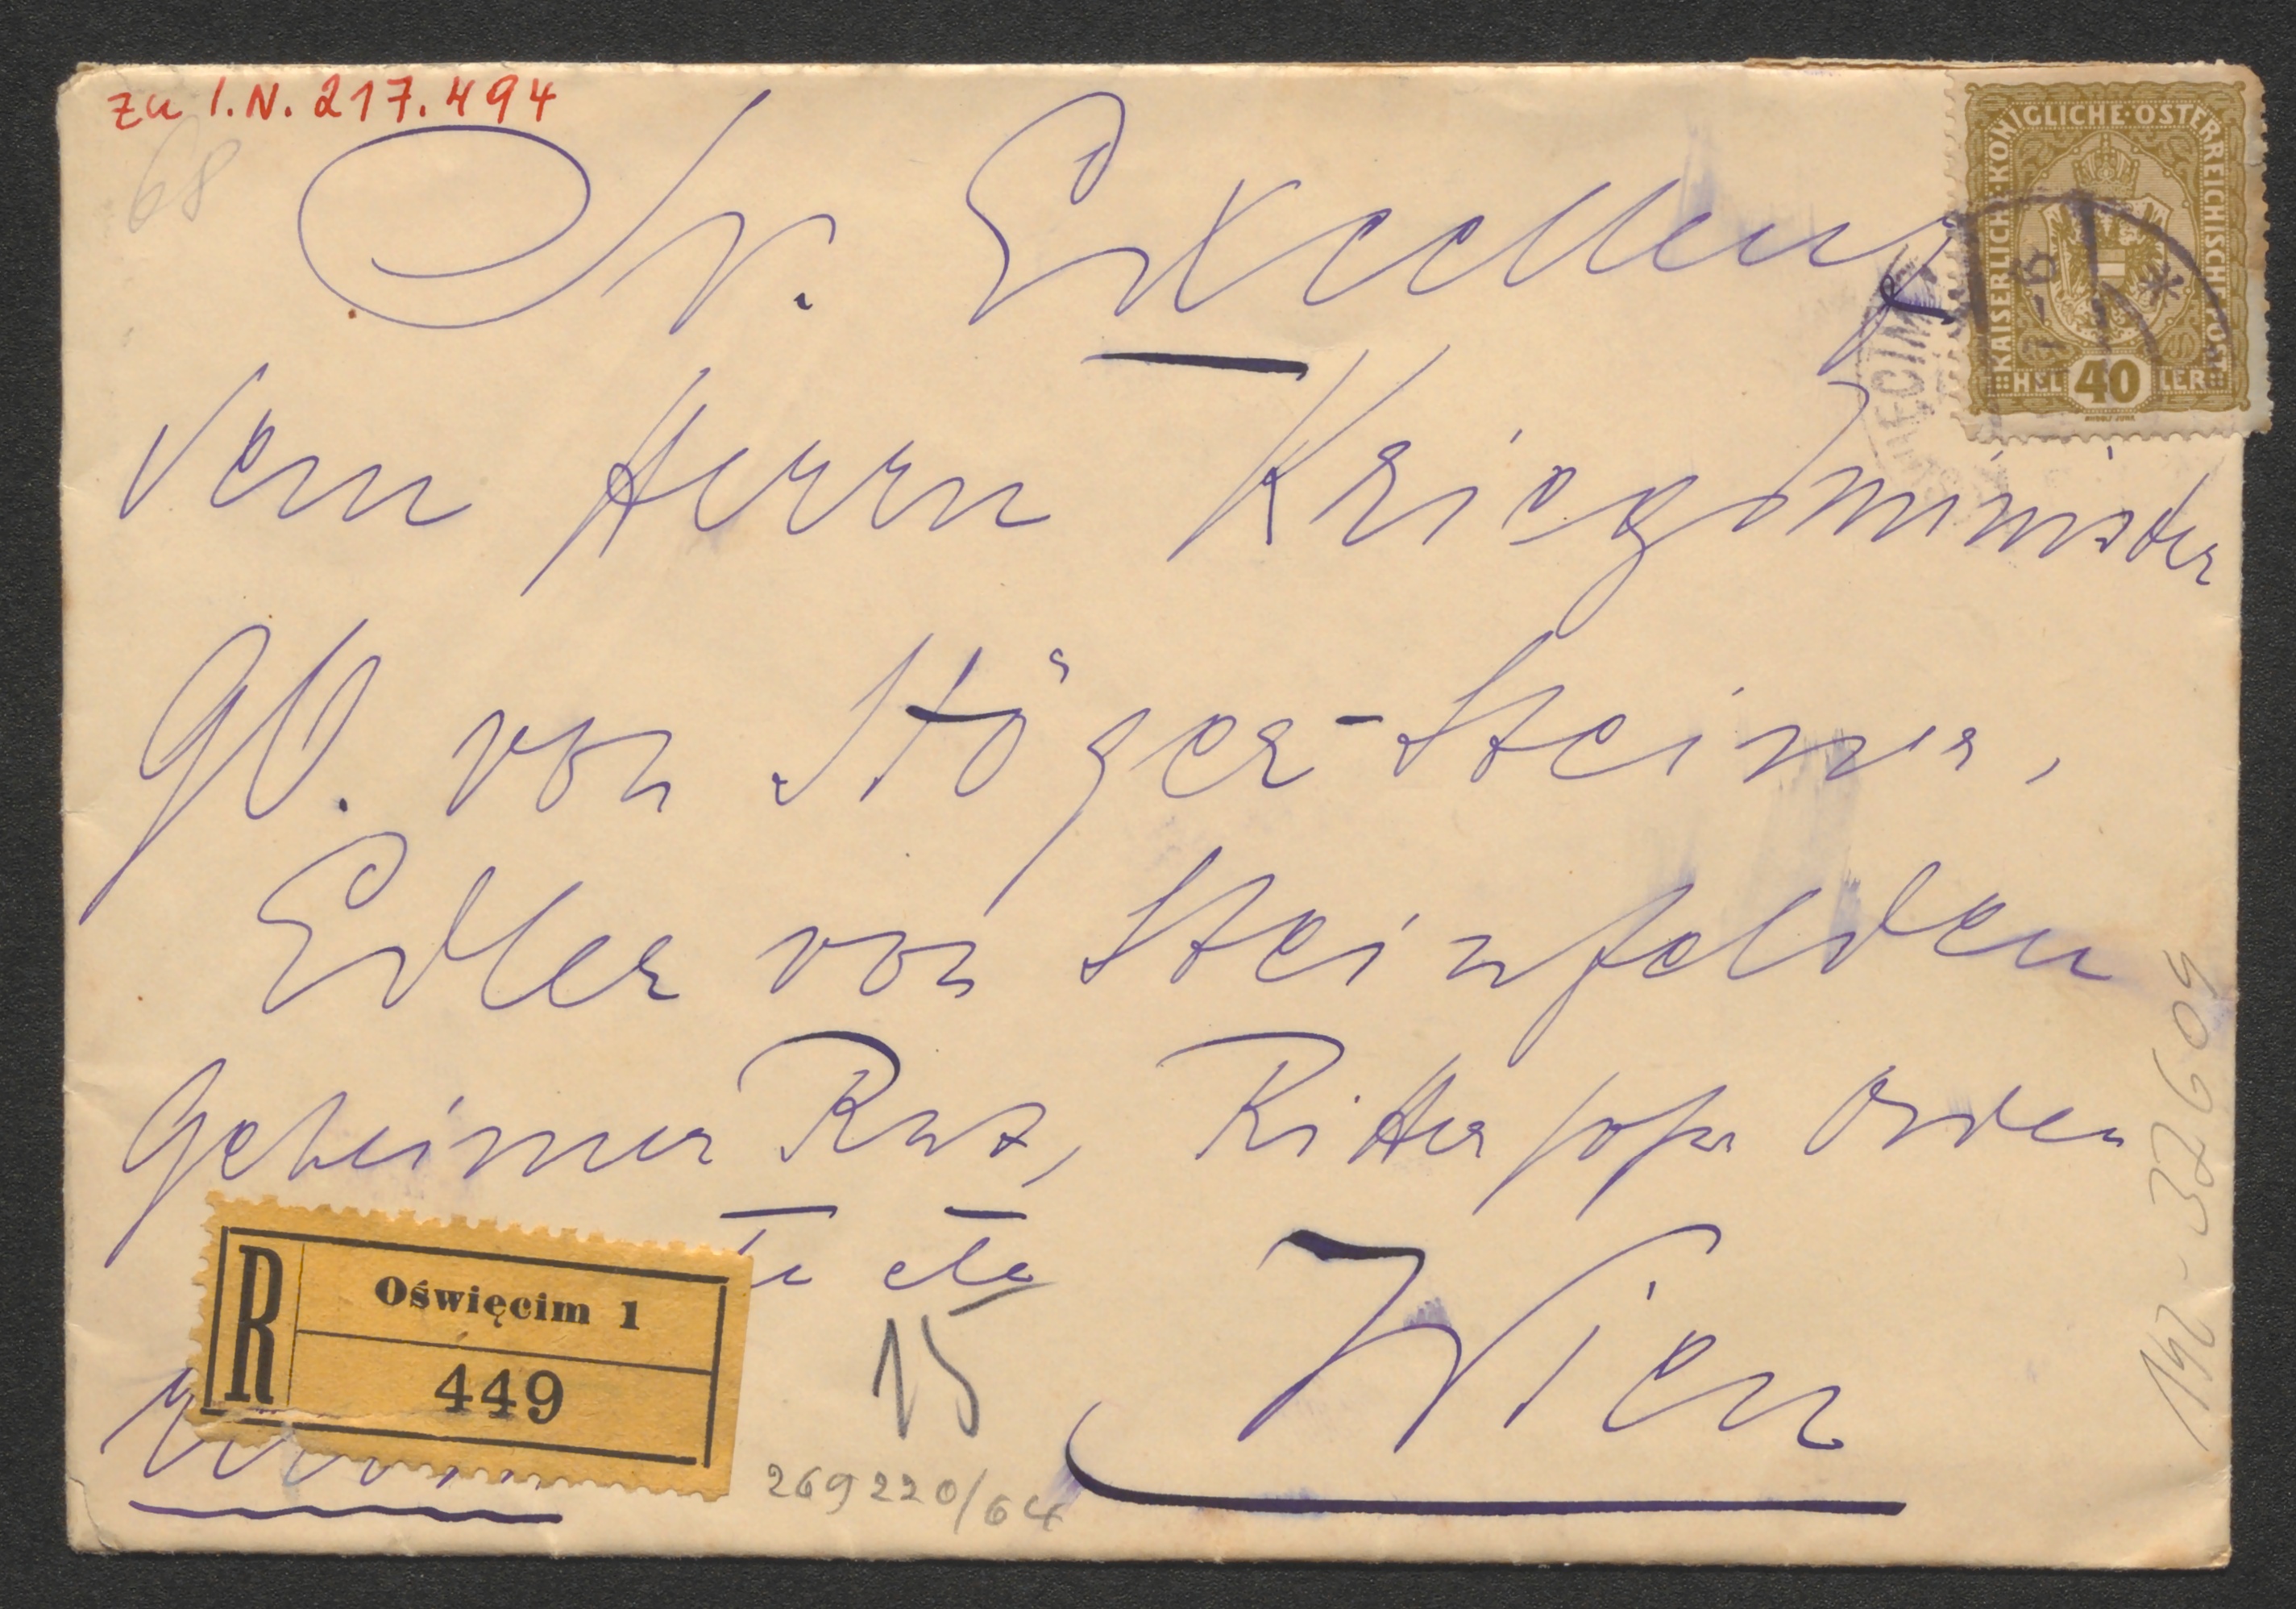 zu I.N. 217.494
68
Sr. Excellenz
dem Herrn Kriegsminister
GO. von Stöger-Steiner,
Edler von Steinfelden
Geheimer Rat, Ritter hoher Orden
etc
Wien
15
269220/64
R
Oświęcim 1
449
KAISERLICH·KÖNIGLICHE·ÖSTERREICHISCHE·POST
HEL 40 LER